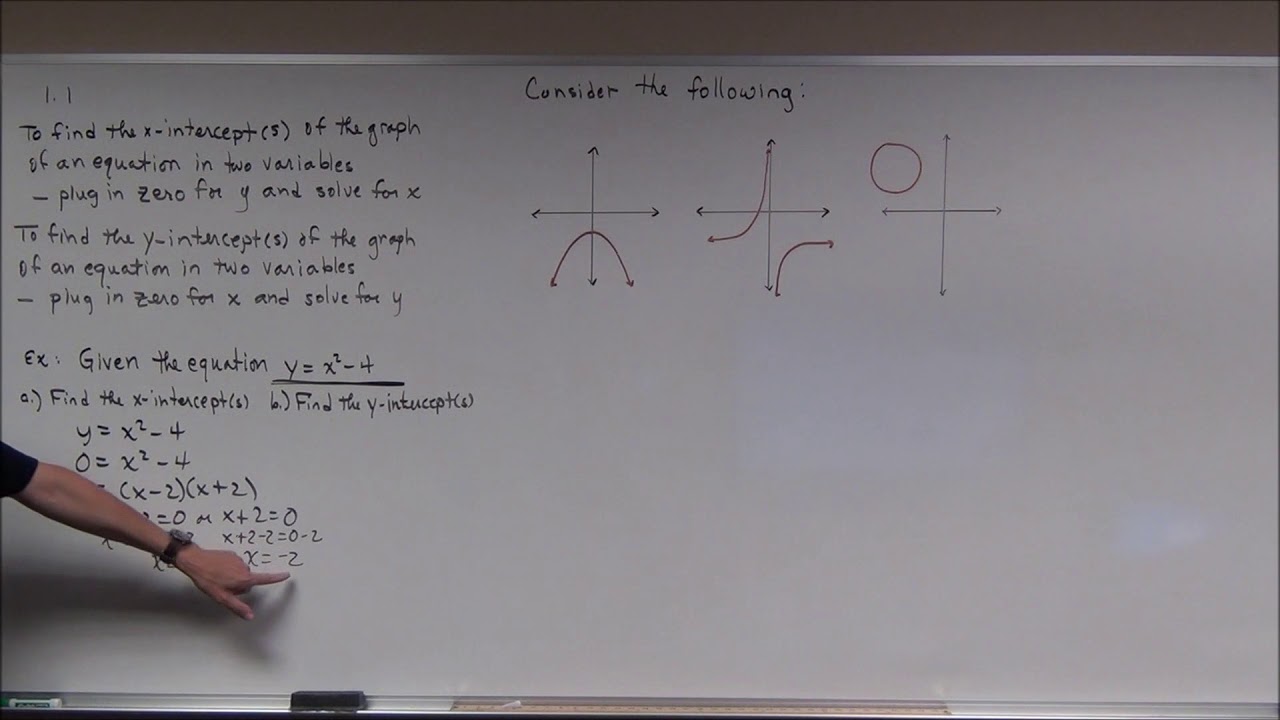 1.1
To find the x-intercept(s) of the graph
of an equation in two variables
– plug in zero for y and solve for x
To find the y-intercept(s) of the graph
of an equation in two variables
– plug in zero for x and solve for y
Ex: Given the equation y = x² - 4
a.) Find the x-intercept(s) b.) Find the y-intercept(s)
y = x² - 4
0 = x² - 4
(x-2)(x+2)
=0 or x+2=0
x+2-2=0-2
x=-2
Consider the following: